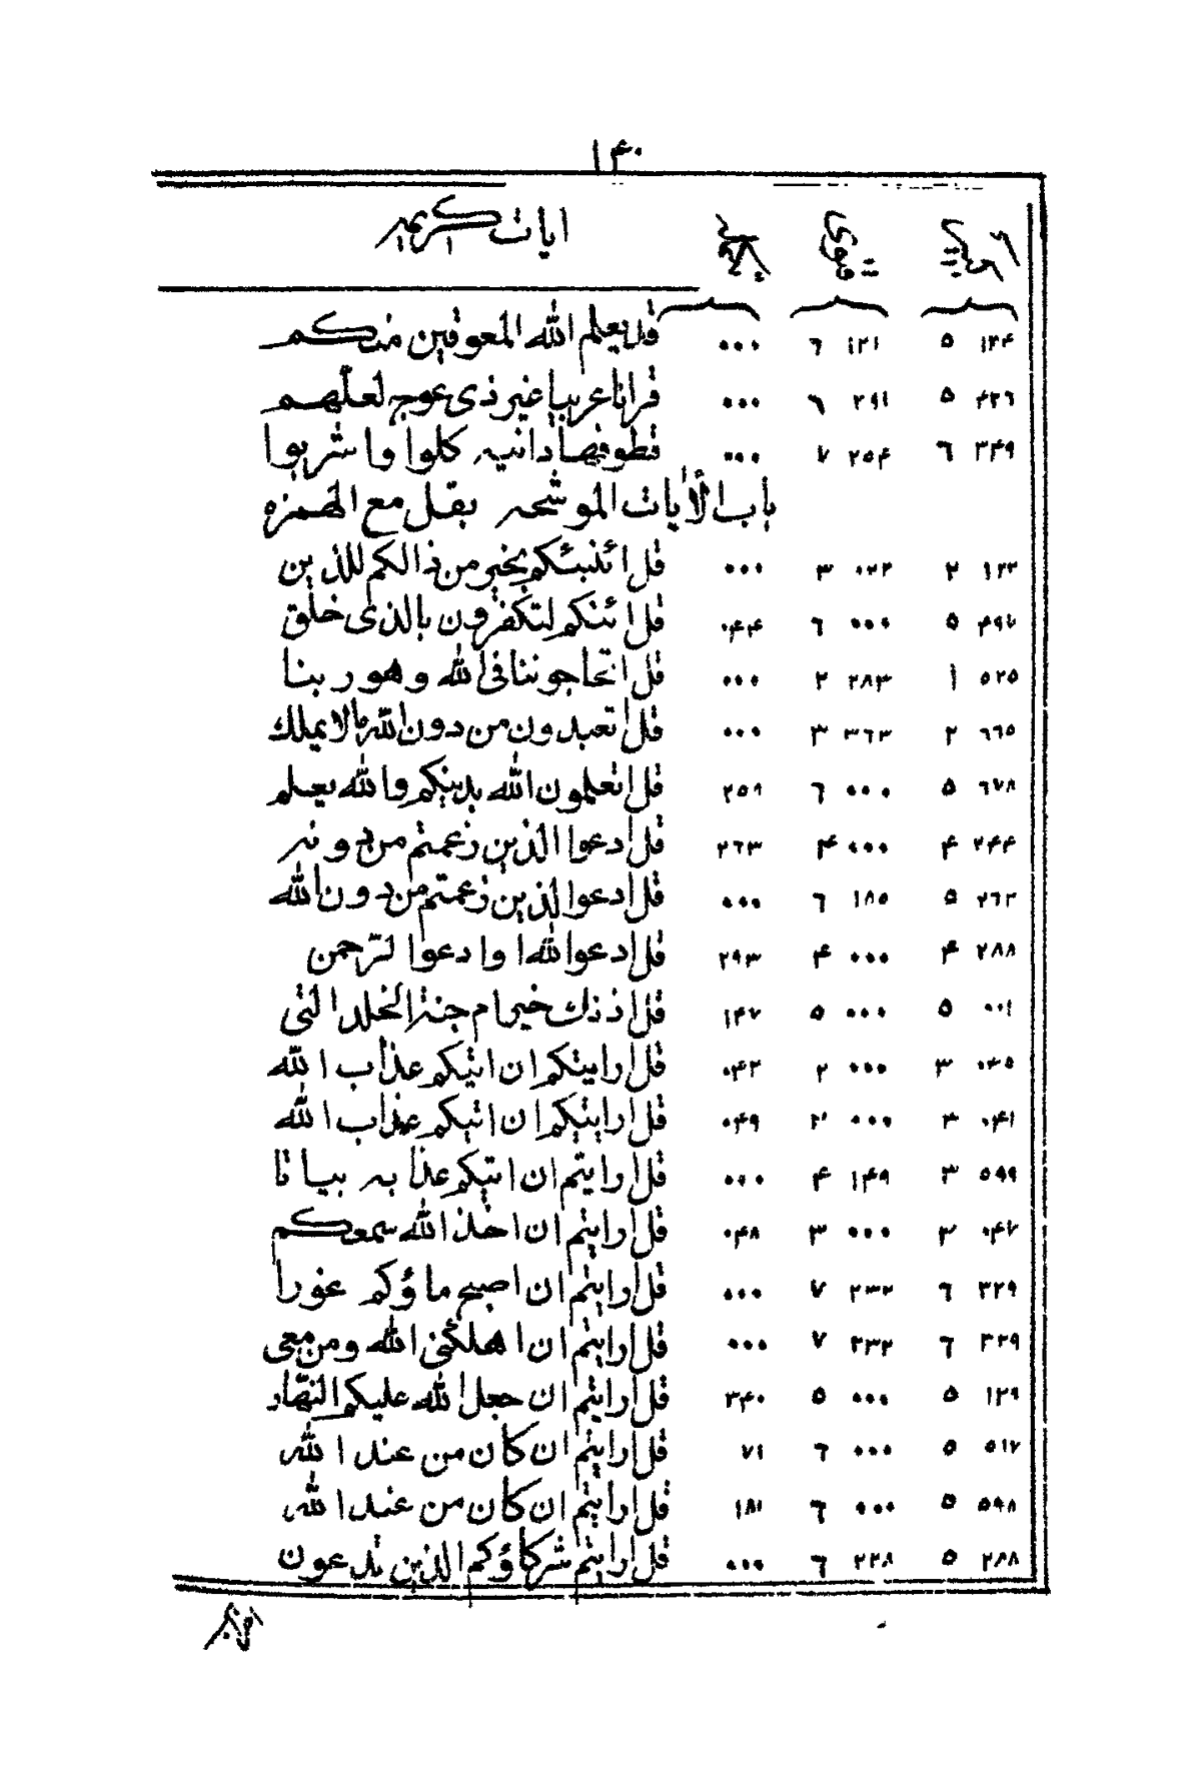 ١۴٠
ايات كريمه
١٢۴ ٥ ١٢١ ٦ ٠٠٠ قد يعلم الله المعوقين منكم
۴٢٦ ٥ ٢٩١ ٦ ٠٠٠ قرانا عربيا غير ذى عوج لعلهم
٣۴٩ ٦ ٢٥۴ ٧ ٠٠٠ قطوفها دانيه كلوا واشربوا
باب الأيات الموشحه بقل مع الهمزه
١٢٢ ٢ ٠٢٢ ٣ ٠٠٠ قل ائنبئكم بخير من ذالكم للذين
۴٩٧ ٥ ٠٠٠ ٦ ٠۴۴ قل ائنكم لتكفرون بالذى خلق
٥٢٥ ١ ٢٨٣ ٢ ٠٠٠ قل اتحاجوننا فى الله وهو ربنا
٦٦٥ ٢ ٣٦٣ ٣ ٠٠٠ قل اتعبدون من دون الله ما لا يملك
٦٧٨ ٥ ٠٠٠ ٦ ٢٥٩ قل اتعلمون الله بدينكم والله يعلم
٢۴۴ ۴ ٠٠٠ ۴ ٢٦٣ قل ادعوا الذين زعمتم من دونه
٢٦٢ ٥ ١٨٥ ٦ ٠٠٠ قل ادعوا الذين زعمتم من دون الله
٢٨٨ ۴ ٠٠٠ ۴ ٢٩٣ قل ادعوا الله او ادعوا لرّحمن
٠٠١ ٥ ٠٠٠ ٥ ١۴٧ قل اذ ذلك خير ام جنة الخلد التى
٠٣٥ ٣ ٠٠٠ ٢ ٠۴٢ قل ارايتكم ان اتيكم عذاب الله
٠۴١ ٣ ٠٠٠ ٢ ٠۴٩ قل ارايتكم ان اتيكم عذاب الله
٥٩٩ ٣ ١۴٩ ۴ ٠٠٠ قل ارايتم ان اتيكم عذابه بياتا
٠۴٧ ٣ ٠٠٠ ٣ ٠۴٨ قل ارايتم ان اخذ الله سمعكم
٣٢٩ ٦ ٢٣٢ ٧ ٠٠٠ قل ارايتم ان اصبح ماؤكم غورا
٣٢٩ ٦ ٢٣٢ ٧ ٠٠٠ قل ارايتم ان اهلكنى الله ومن معى
١٢٩ ٥ ٠٠٠ ٥ ٣۴٠ قل ارايتم ان جعل الله عليكم النهار
٥١٧ ٥ ٠٠٠ ٦ ٧١ قل ارايتم ان كان من عند الله
٥٩٨ ٥ ٠٠٠ ٦ ١٨١ قل ارايتم ان كان من عند الله
٢٨٨ ٥ ٢٢٨ ٦ ٠٠٠ قل ارايتم شركاؤكم الذين تدعون